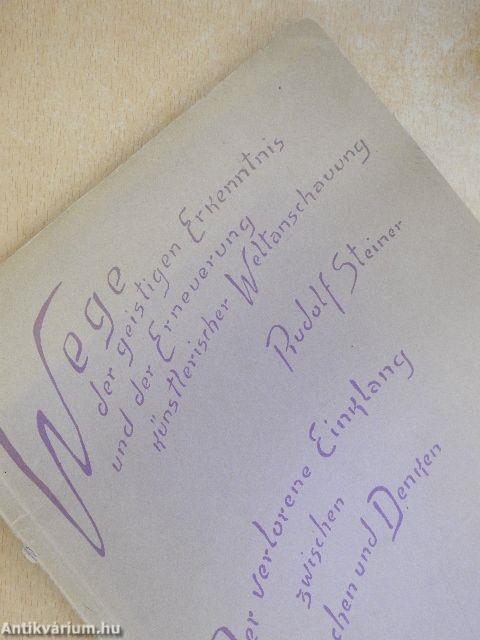 Wege
der geistigen Erkenntnis
und der Erneuerung
künstlerischer Weltanschauung
Rudolf Steiner
er verlorene Einklang
zwischen
chen und Denken
Antikvárium.hu